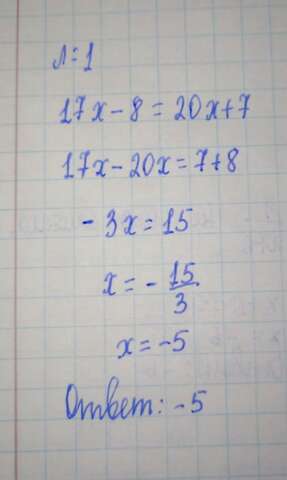 л=1
17x-8=20x+7
17x-20x=7+8
-3x=15
x=-15/3
x=-5
Ответ: -5